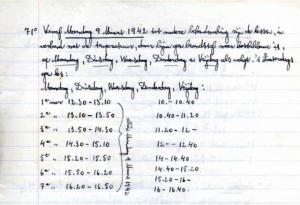 71° Vanaf Maandag 9 Maart 1942 tot nadere zijn de lessen, in
verband met de temperatuur, door
op Maandag, Dinsdag, Woensdag, Donderdag en Vrijdag als volgt. 's Zaterdags
geen les:
Maandag, Dinsdag, Woensdag, Donderdag, Vrijdag:
1e uur 12.30-13.10 10.-10.40
2e „ 13.10-13.50 10.40-11.20
3e „ 13.50-14.30 11.20-12-
4e „ 14.30-15.10 12--12.40
5e „ 15.20-15.50 14-14.40
6e „ 15.50-16.20 14.40-15.20
7e „ 16.20-16.50 15.20-16-
16-16.40.
Maandag 9 Maart 1942